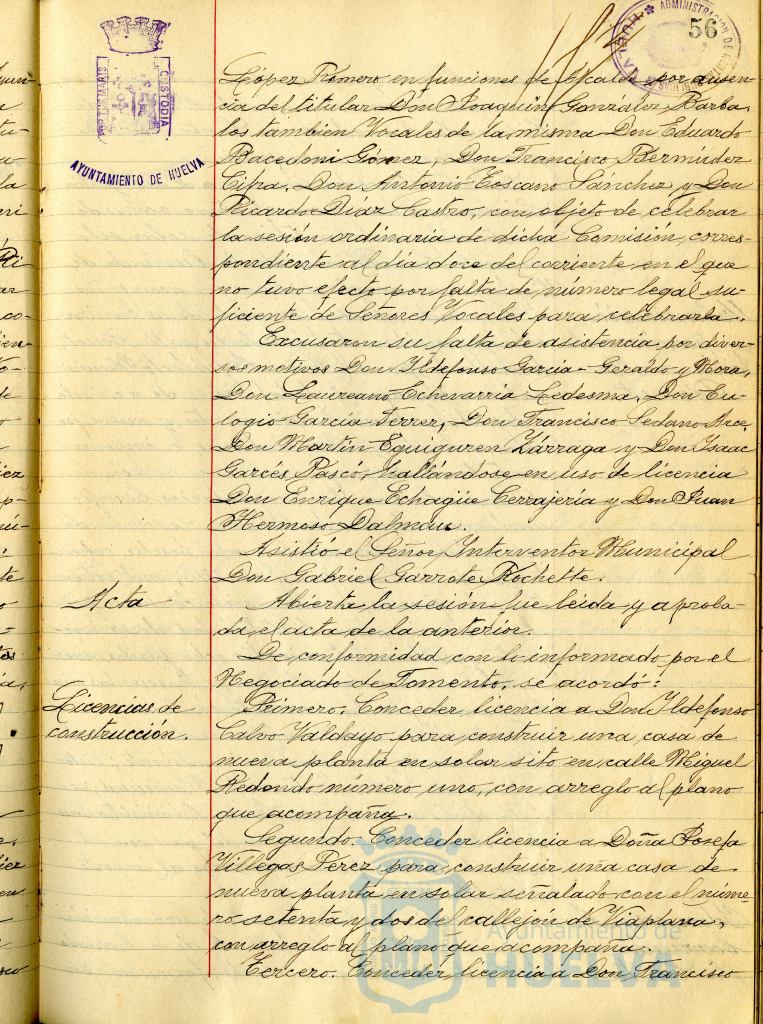 56
ADMINISTRACION DE
HUELVA
PORTUS MARIS
CUSTODIA
AYUNTAMIENTO DE HUELVA
López Romero en funciones de Alcalde por ausen-
cia del titular Don Joaquín González Barba,
los tambien Vocales de la misma Don Eduardo
Bacedoni Gómez, Don Francisco Bermúdez
Cifra, Don Antonio Toscano Sánchez y Don
Ricardo Díaz Castro, con objeto de celebrar
la sesión ordinaria de dicha Comisión, corres-
pondiente al día doce del corriente, en el que
no tuvo efecto por falta de número legal su-
ficiente de Señores Vocales para celebrarla.
Excusaron su falta de asistencia por diver-
sos motivos Don Ildefonso García-Geraldo y Mora,
Don Laureano Echevarria Ledesma, Don Eu-
logio García Ferrer, Don Francisco Sedano Arce,
Don Martín Eguiguren Zárraga y Don Isaac
Garcés Pascó, hallándose en uso de licencia
Don Enrique Echagüe Cerrajería y Don Juan
Hermoso Dalmau.
Asistió el Señor Interventor Municipal
Don Gabriel Garrote Rochette.
Acta
Abierta la sesión fue leida y aproba-
da el acta de la anterior.
De conformidad con lo informado por el
Negociado de Fomento, se acordó:
Licencias de
construcción.
Primero. Conceder licencia a Don Ildefonso
Calvo Valdayo para construir una casa de
nueva planta en solar sito en calle Miguel
Redondo número uno, con arreglo al plano
que acompaña.
Segundo. Conceder licencia a Doña Josefa
Villegas Pérez para construir una casa de
nueva planta en solar señalado con el núme-
ro setenta y dos del callejón de Viaplana,
con arreglo al plano que acompaña.
Tercero. Conceder licencia a Don Francisco
Ayuntamiento de
HUELVA